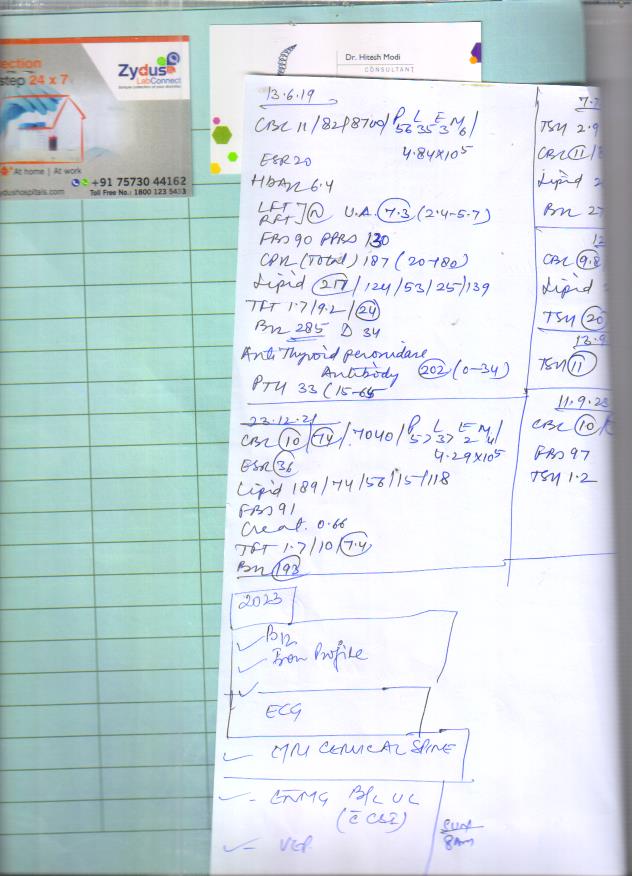 ection
step 24 x 7
Zydus
LabConnect
At home | At work
+91 75730 44162
ydushospitals.com
Toll Free No.: 1800 123 5433
Dr. Hitesh Modi
CONSULTANT
13.6.19
CBC 11/82/8700/ P 56 L 35 E 3 M 6/
4.84x10⁵
ESR 20
HbA1c 6.4
LFT
RFT ] (N) U.A. 7.3 (2.4-5.7)
FBS 90 PPBS 130
CPK (Total) 187 (20-180)
Lipid 217/124/53/25/139
TFT 1.7/9.2/24
B12 285 D 34
Anti Thyroid peroxidase
Antibody 202 (0-34)
PTH 33 (15-65
23.12.21
CBC 10/74/7040/ P 57 L 37 E 2 M 4/
4.29x10⁵
ESR 36
Lipid 189/74/56/15/118
FBS 91
Creat. 0.66
TFT 1.7/10/7.4
B12 193
7.7
TSH 2.9
CBC 11/8
Lipid 2
B12 27
12
CBC 9.8
Lipid
TSH 20
13.9
TSH 11
11.9.23
CBC 10
FBS 97
TSH 1.2
2023
B12
Iron Profile
ECG
MRI CERVICAL SPINE
ENMG B/L UL
(c̄ CSI)
VEP
SUN
8AM